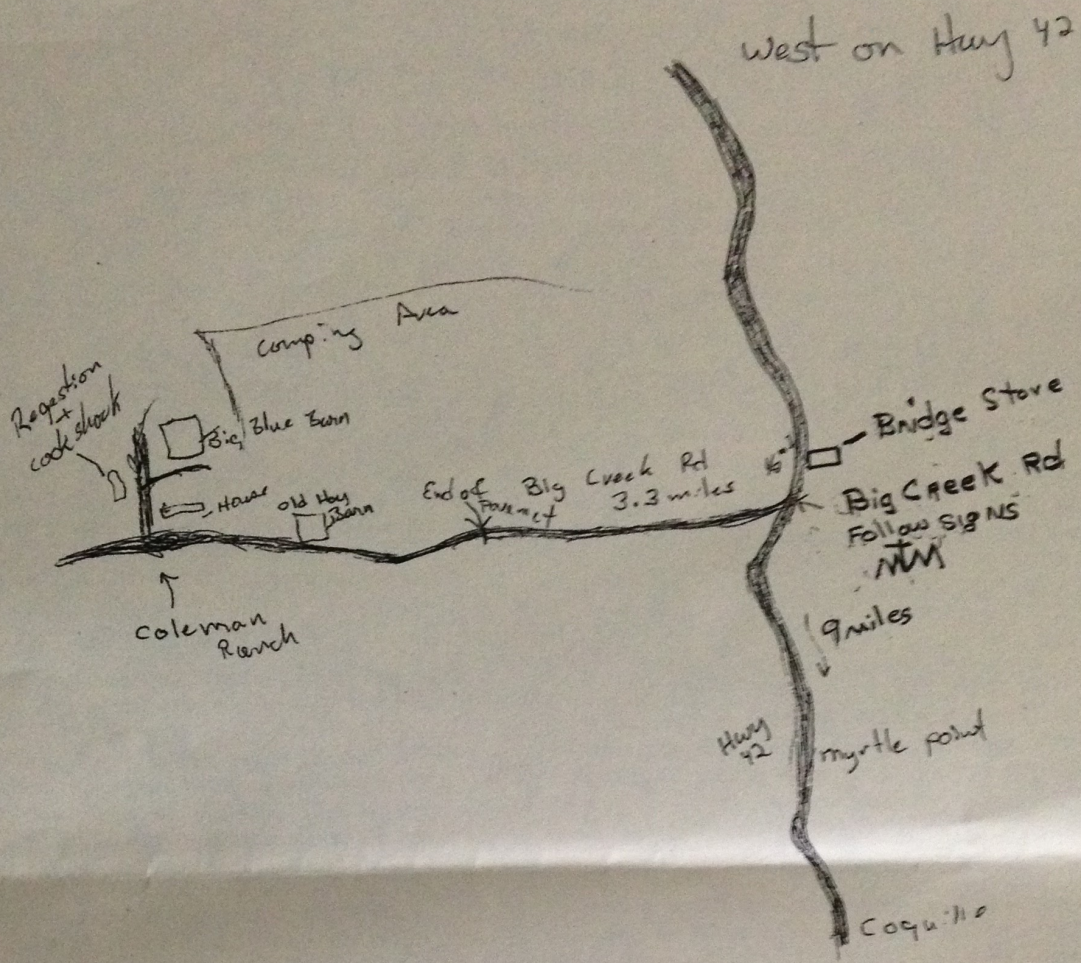 West on Hwy 42
Camping Area
Regestion
+
cookshack
Big Blue Barn
House
Old Hay
Barn
End of
Pavment
Big Creek Rd
3.3 miles
Bridge Store
Big Creek Rd
Follow SIGNS
9 miles
Coleman
Ranch
Hwy
42
myrtle point
Coquille